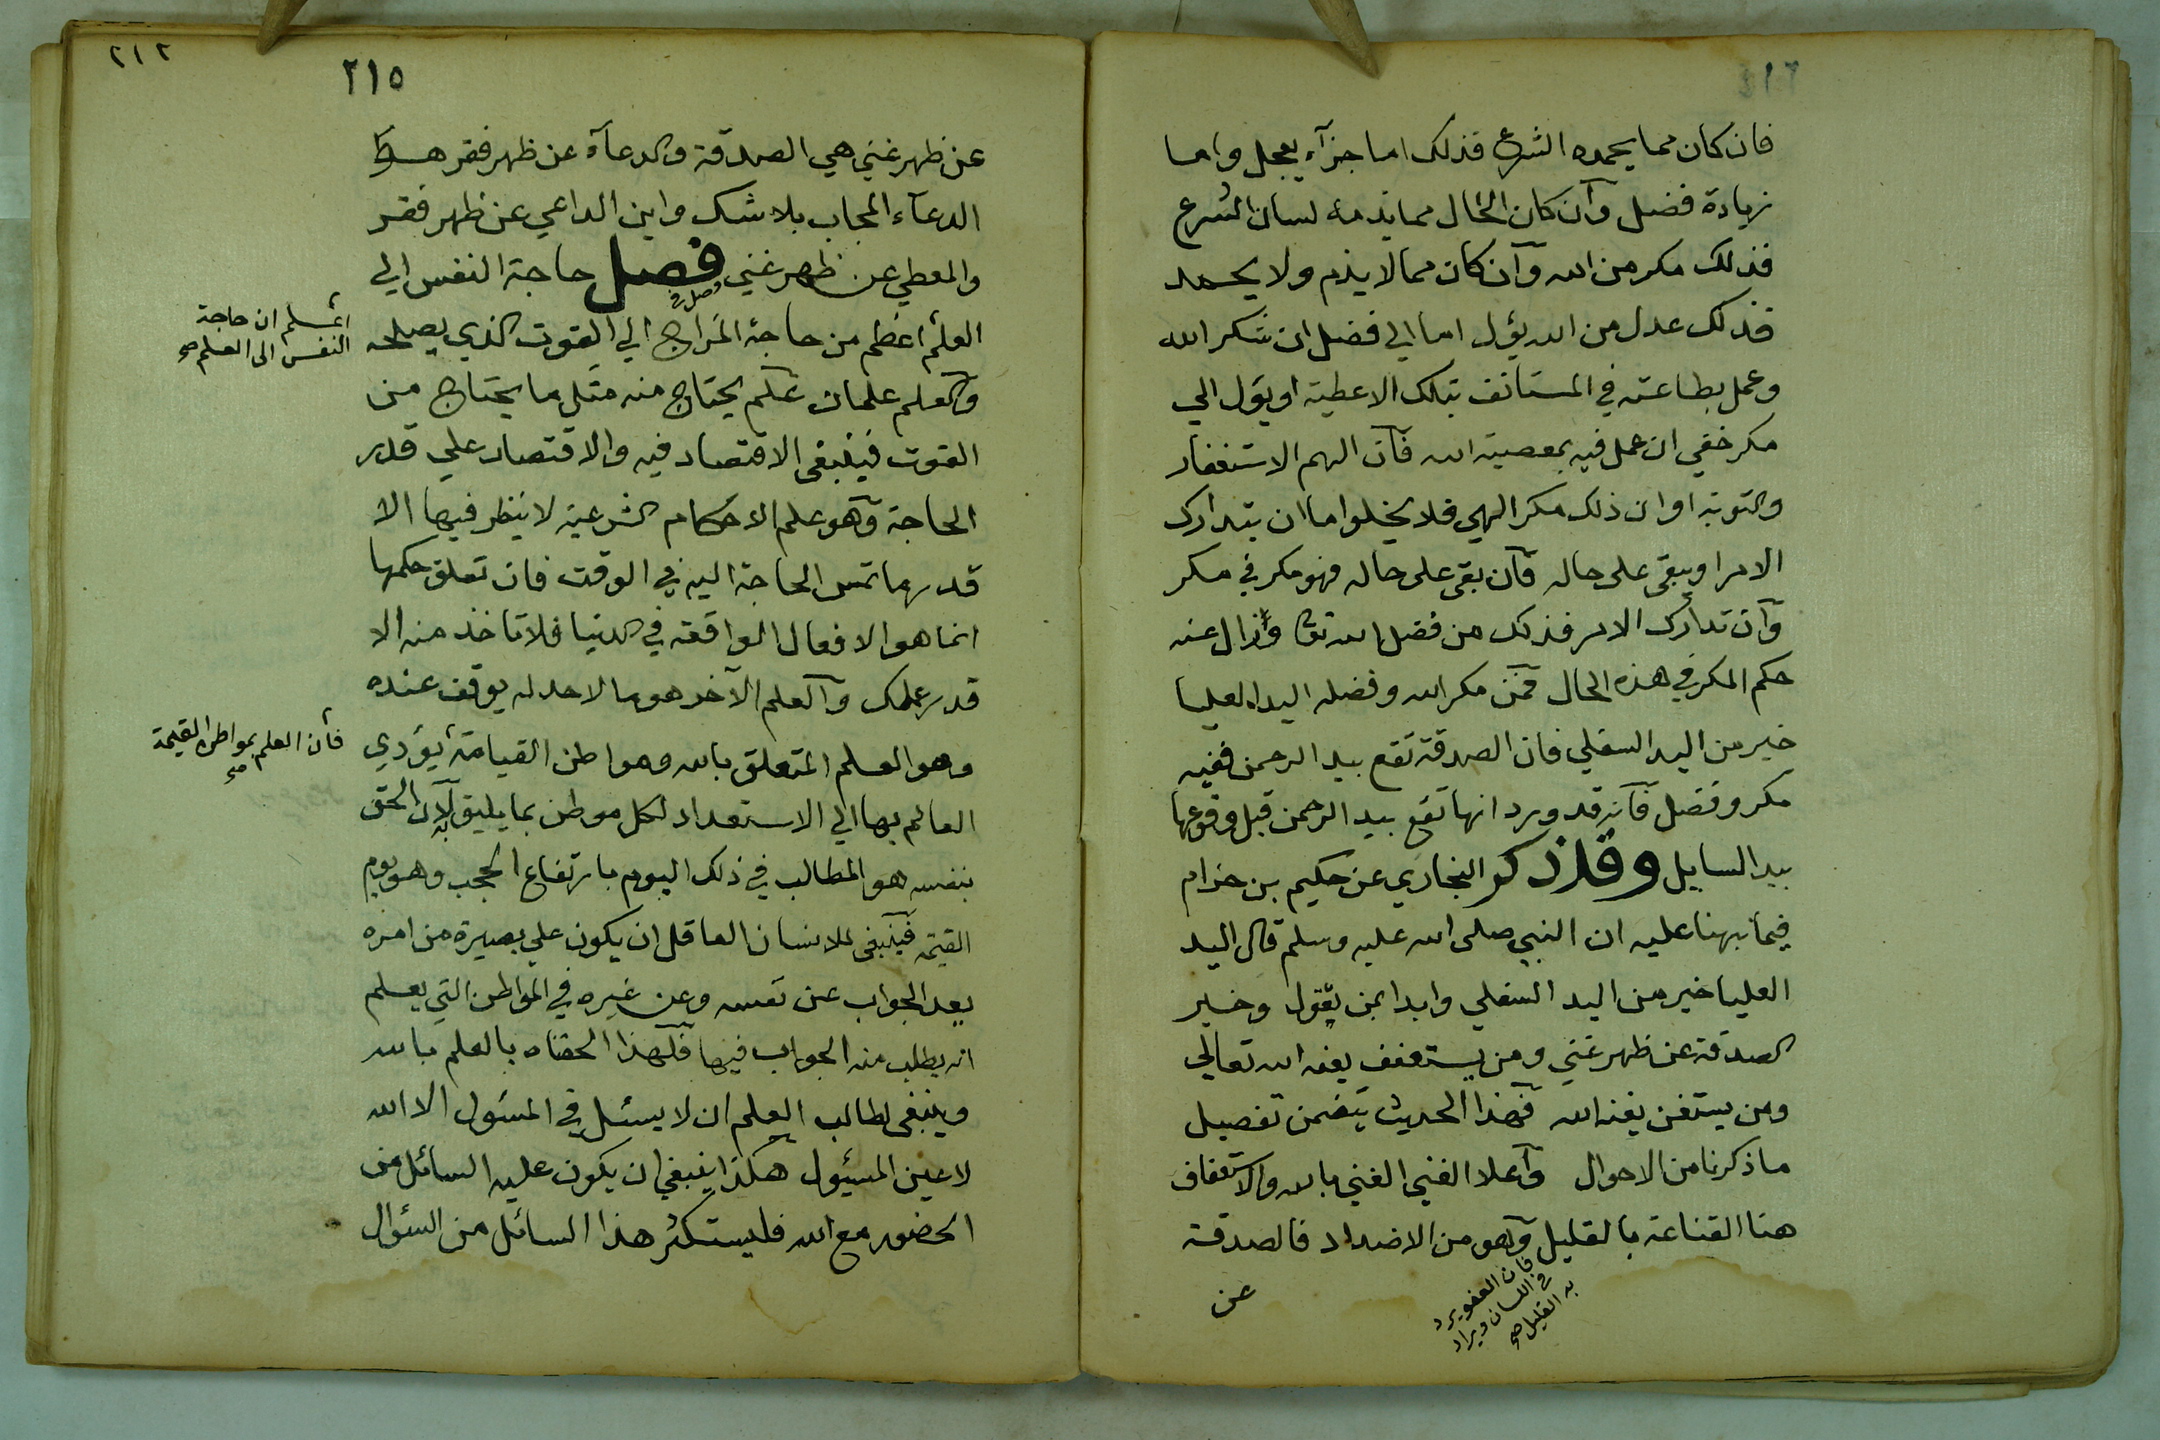 فان كان مما يحمده الشرع فذلك اما جزآء يعجل واما
زيادة فضل وآن كان الحال مما يذمه لسان الشرع
فذلك مكر من الله وآن كان مما لا يذم ولا يحمد
فذلك عدل من الله يؤل اما الي فضل ان شكر الله
وعمل بطاعته في المستانف بتلك الاعطية او يؤل الي
مكر خفي ان عمل فيه بمعصية الله فآن الهم الاستغفار
والتوبة او ان ذلك مكر الهي فلا يخلوا اما ان يتدارك
الامر او يبقى على حاله فآن بقي على حاله فهو مكر في مكر
وآن تدارك الامر فذلك من فضل الله تعا وزال عنه
حكم المكر في هذه الحال فمن مكر الله وفضله اليد العليا
خير من اليد السفلي فان الصدقة تقع بيد الرحمن ففيه
مكر وفضل فآنه قد ورد انها تقع بيد الرحمن قبل وقوعها
بيد السايل وقد ذكر البخاري عن حكيم بن حزام
فيما نبهنا عليه ان النبي صلى الله عليه وسلم قال اليد
العليا خير من اليد السفلي وابدا بمن تعول وخير
الصدقة عن ظهر غني ومن يستعفف يعفه الله تعالي
ومن يستغن يغنه الله فهذا الحديث يتضمن تفصيل
ما ذكرنا من الاحوال وآعلا الغني الغني بالله والاستعفاف
هنا القناعة بالقليل وآهو من الاضداد فالصدقة
فان العفو يرد
في اللسان ويراد
به القليل صح
عن
٢١٢
٢١٥
عن ظهر غني هي الصدقة والدعآء عن ظهر فقر هو
الدعآء المجاب بلا شك واين الداعي عن ظهر فقر
والمعطي عن ظهر غني فصل حاجة النفس الي
وصل في
العلم اعظم من حاجة المزاج الي القوت الذي يصلحه
اعلم ان حاجة
النفس الى العلم صح
وآلعلم علمان علم يحتاج منه مثل ما يحتاج من
القوت فينبغي الاقتصاد فيه والاقتصار علي قدر
الحاجة وآهو علم الاحكام الشرعية لا ينظر فيها الا
قدر ما تمس الحاجة اليه في الوقت فان تعلق حكمها
انما هو الافعال الواقعة في الدنيا فلا تاخذ منه الا
قدر عملك وآلعلم الآخر هو ما لا حد له يوقف عنده
وهو العلم المتعلق بالله ومواطن القيامة يؤدي
فان العلم بمواطن القيمة
صح
العالم بها الي الاستعداد لكل موطن بما يليق به لان الحق
بنفسه هو المطالب في ذلك اليوم بارتفاع الحجب وهو يوم
القيمة فينبغي للانسان العاقل ان يكون علي بصيرة من امره
يعد الجواب عن نفسه وعن غيره في المواطن التي يعلم
انه يطلب منه الجواب فيها فلهذا الحقناه بالعلم بالله
وينبغي لطالب العلم ان لا يسئل في المسئول الا الله
لا عين المسيئول هكذا ينبغي ان يكون عليه السائل من
الحضور مع الله فليستكثر هذا السائل من السئوال